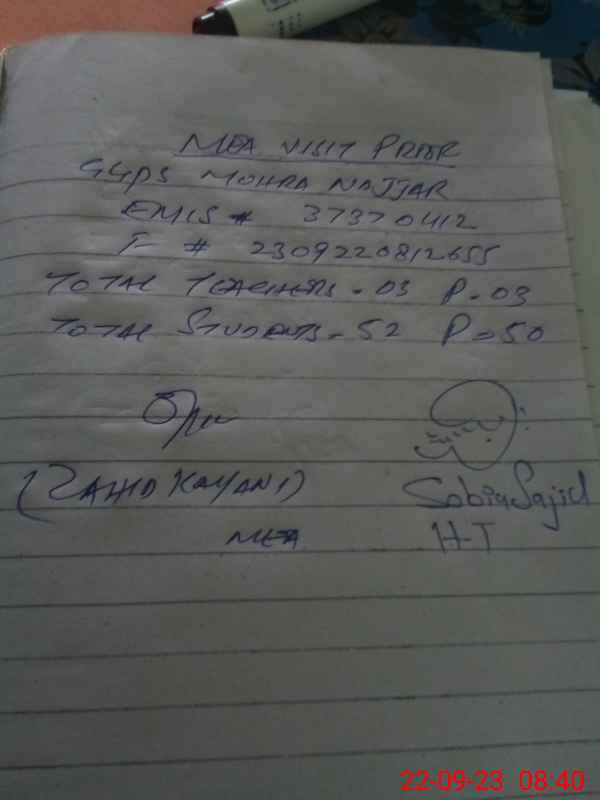 MEA VISIT PROOF
GGPS MOHRA NAJJAR
EMIS # 37370412
T # 2309220812655
TOTAL TEACHERS = 03 P = 03
TOTAL STUDENTS = 52 P = 50
(ZAHID KAYANI) Sobia Sajid
MEA H-T
22-09-23 08:40